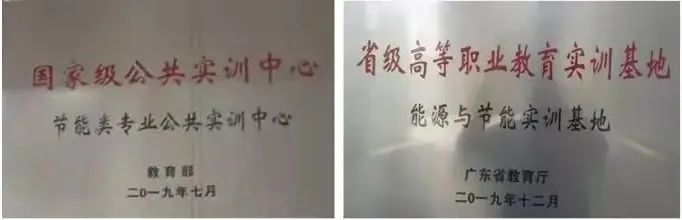 国家级公共实训中心
节能类专业公共实训中心
教育部
二〇一九年七月
省级高等职业教育实训基地
能源与节能实训基地
广东省教育厅
二〇一九年十二月